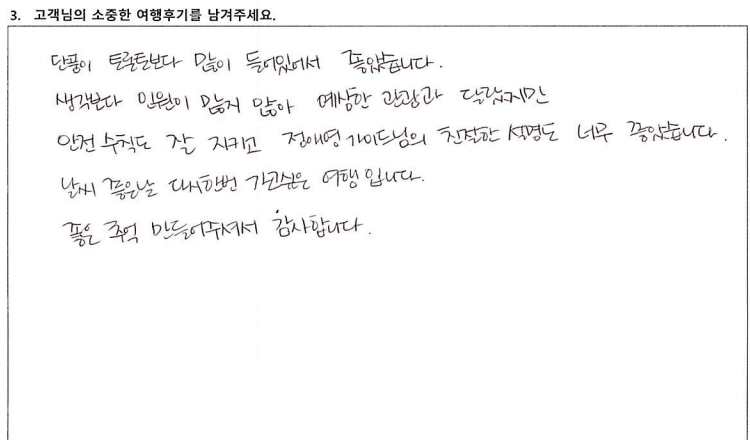 3. 고객님의 소중한 여행후기를 남겨주세요.
단풍이 토론토보다 많이 들어있어서 좋았습니다.
생각보다 인원이 많지 않아 예상한 관광과 달랐지만
안전 수칙도 잘 지키고 정애영 가이드님의 친절한 설명도 너무 좋았습니다.
날씨 좋은날 다시한번 가고싶은 여행 입니다.
좋은 추억 만들어주셔서 감사합니다.